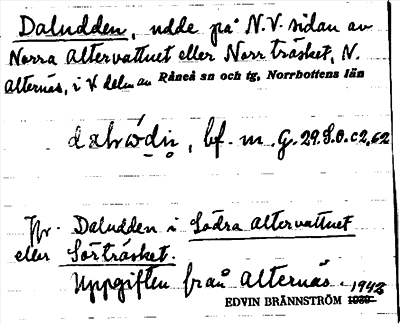 Daludden, udde på N.V. sidan av
Norra Altervattnet eller Norr träsket, N.
Alternäs, i V delen av Råneå sn och tg, Norrbottens län
bf. m. G. 29. S.O. c2,62
Jfr. Daludden i Södra Altervattnet
eller Sörträsket.
Uppgiften från Alternäs. 1943
EDVIN BRÄNNSTRÖM 1939